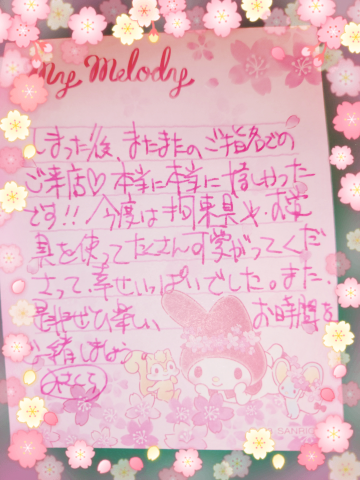 My Melody
しまった!!後、またまたのご指名での
ご来店♡本当に本当に嬉しかった
です!!今度は拘束具や、お道
具を使ってたくさん可愛がってくだ
さって、幸せいっぱいでした。また、
是非ぜひ楽しいお時間を
ご一緒しましょう
SANRIO